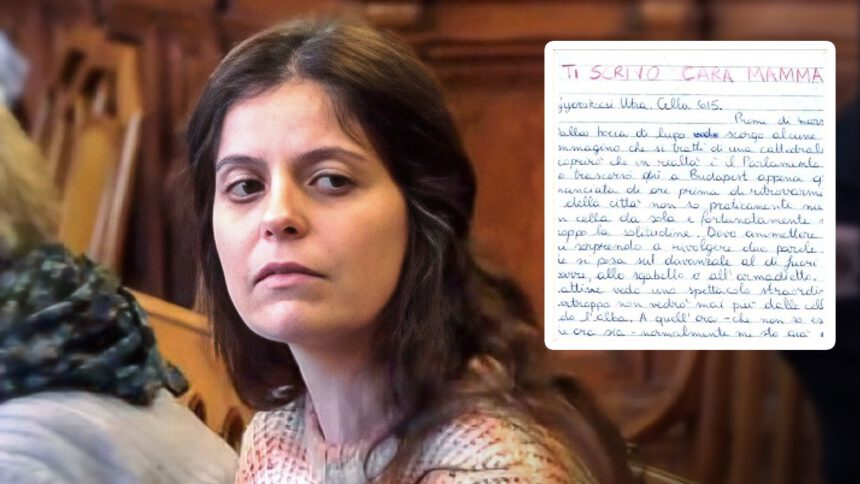 TI SCRIVO CARA MAMMA
Gyorskocsi Utca. Cella 615.
Primi di
bocca di lupo scorgo alcune
immagino che si tratti di una cattedrale
che in realtà è il Parlamento
o trascorso qui a Budapest appena
manciata di ore prima di ritrovarmi
della città non so praticamente
n cella da sola e fortunatamente
oppo la solitudine. Devo ammettere
sorprendo a rivolgere due parole
si posa sul davanzale al di fuori
allo sgabello o all'armadietto.
vedo uno spettacolo
non vedrò mai più dalla
do l'alba. A quell'ora - che non so
e ora sia - normalmente mi sto già